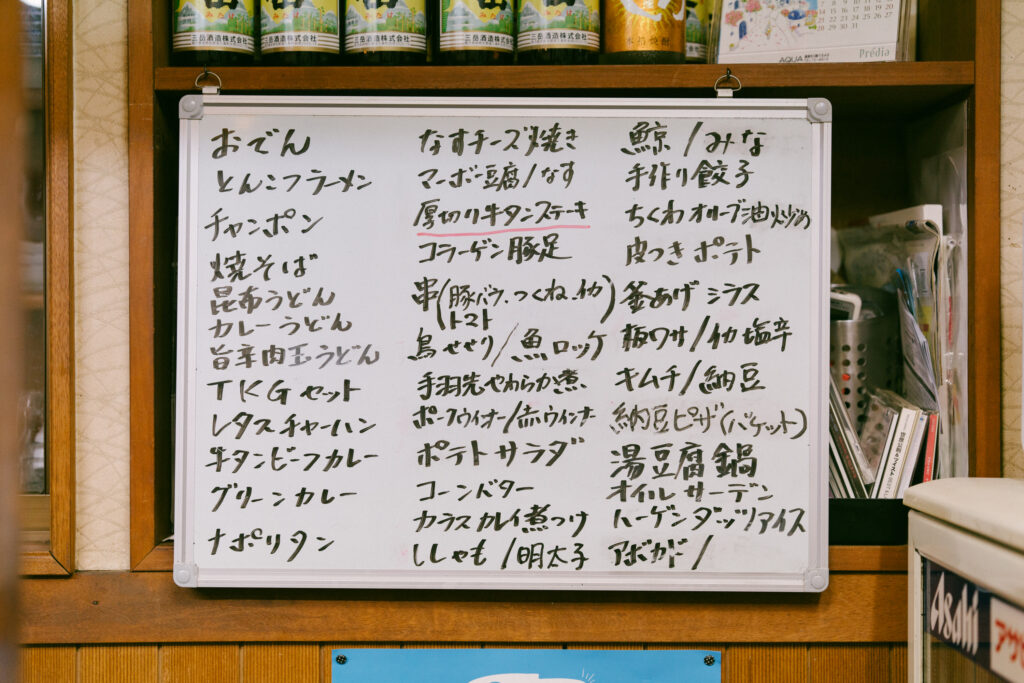 三岳酒造株式会社
三岳酒造株式会社
三岳酒造株式会社
三岳酒造株式会社
三岳酒造株式会社
AQUA
Prédia
おでん
とんこつラーメン
チャンポン
焼そば
昆布うどん
カレーうどん
旨辛肉玉うどん
TKGセット
レタスチャーハン
牛タンビーフカレー
グリーンカレー
ナポリタン
なすチーズ焼き
マーボー豆腐/なす
厚切り牛タンステーキ
コラーゲン豚足
串(豚バラ、つくね、イカ)
トマト
鳥せせり/魚ロッケ
手羽先やわらか煮
ポークウィンナー/赤ウィンナー
ポテトサラダ
コーンバター
カラスカレイ煮つけ
ししゃも/明太子
鯨/みな
手作り餃子
ちくわオリーブ油炒め
皮つきポテト
釜あげシラス
板ワサ/イカ塩辛
キムチ/納豆
納豆ピザ(バケット)
湯豆腐鍋
オイルサーデン
ハーゲンダッツ/アイス
アボカド/
Asahi
アサヒ